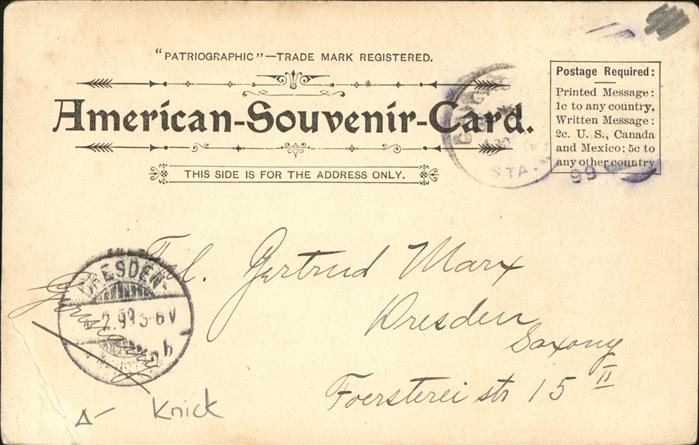 "PATRIOGRAPHIC"—TRADE MARK REGISTERED.
American-Souvenir-Card.
THIS SIDE IS FOR THE ADDRESS ONLY.
Postage Required:
Printed Message:
1c to any country.
Written Message:
2c. U. S., Canada
and Mexico; 5c to
any other country
STA.
99
Frl. Gertrud Marx
Dresden
Saxony
Foersterei str 15 II
Germany
DRESDEN-
2.99 5-6 V
Knick